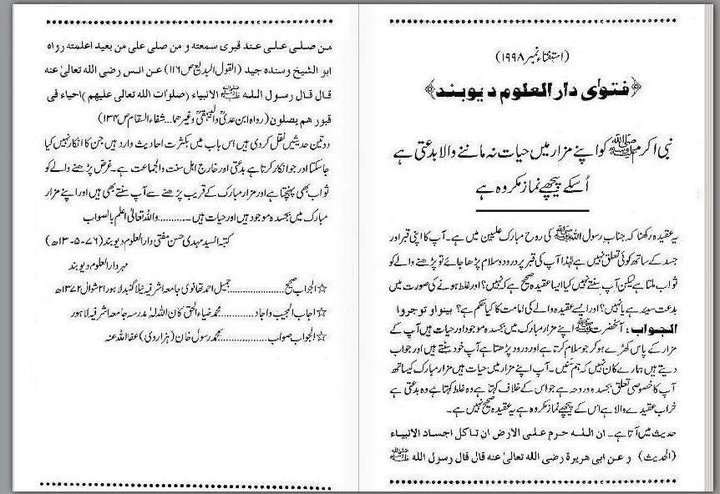 (استفتاء نمبر ۱۹۹۸)
﴿فتوٰی دار العلوم دیوبند﴾
نبی اکرم ﷺ کو اپنے مزار میں حیات نہ ماننے والا بدعتی ہے
اُسکے پیچھے نماز مکروہ ہے
یہ عقیدہ رکھنا کہ جناب رسول اللہ ﷺ کی روح مبارک علیین میں ہے۔ آپ کا اپنی قبر اور
جسد کے ساتھ کوئی تعلق نہیں ہے لہٰذا آپ کی قبر پر درود و سلام پڑھا جائے تو پڑھنے والے کو
ثواب ملتا ہے لیکن آپ سنتے نہیں کیا ایسا عقیدہ صحیح ہے کہ نہیں؟ اور غلط ہونے کی صورت میں
بدعت سیئہ ہے یا نہیں؟ اور ایسے عقیدہ والے کی امامت کا کیا حکم ہے؟ بینوا توجروا
الجواب: آنحضرت ﷺ اپنے مزار مبارک میں بجسدہ موجود اور حیات ہیں آپ کے
مزار کے پاس کھڑے ہو کر جو سلام کرتا ہے اور درود پڑھتا ہے آپ خود سنتے ہیں اور جواب
دیتے ہیں ہمارے کان نہیں کہ ہم سنیں۔ آپ اپنے مزار میں حیات ہیں مزار مبارک کیساتھ
آپ کا خصوصی تعلق بجسدہ و روحہ ہے جو اس کے خلاف کہتا ہے وہ غلط کہتا ہے وہ بدعتی ہے
خراب عقیدے والا ہے اس کے پیچھے نماز مکروہ ہے یہ عقیدہ صحیح نہیں ہے۔
حدیث میں آتا ہے۔ ان اللہ حرم علی الارض ان تاکل اجساد الانبیاء
(الحدیث) و عن ابی ھریرة رضی اللہ تعالیٰ عنہ قال قال رسول اللہ ﷺ
من صلی علی عند قبری سمعتہ و من صلی علی من بعید اعلمتہ رواہ
ابو الشیخ و سندہ جید (القول البدیع ص ۱۱۶) عن انس رضی اللہ تعالیٰ عن
قال قال رسول اللہ ﷺ الانبیاء (صلوات اللہ تعالی علیھم) احیاء فی
قبور ھم یصلون (رواہ ابن عدیؒ والبیہقیؒ وغیرھما.. شفاء السقام ص ۱۳۴)
دو تین حدیثیں نقل کر دی ہیں اس باب میں بکثرت احادیث وارد ہیں جن کا انکار نہیں کیا
جاسکتا اور جو انکار کرتا ہے بدعتی اور خارج اہل سنت والجماعت ہے۔ غرض پڑھنے والے کو
ثواب بھی پہنچتا ہے اور مزار مبارک کے قریب پڑھنے سے آپ سنتے بھی ہیں اور اپنے مزار
مبارک میں بجسدہ موجود ہیں اور حیات ہیں۔........... واللہ تعالیٰ اعلم بالصواب
کتبہ السید مہدی حسن مفتی دار العلوم دیوبند (۷۶-۵-۱۳ھ)
مہر دار العلوم دیوبند
☆الجواب صحیح................. جمیل احمد تھانوی جامعہ اشرفیہ نیلا گنبد لاہور ۲۱ شوال ۱۳۷۶ھ
☆اجاب المجیب واجاد........... محمد ضیاء الحق کان اللہ لہٗ مدرسہ جامعہ اشرفیہ لاہور
☆الجواب صواب................. محمد رسول خان (ہزاروی) عفا اللہ عنہ